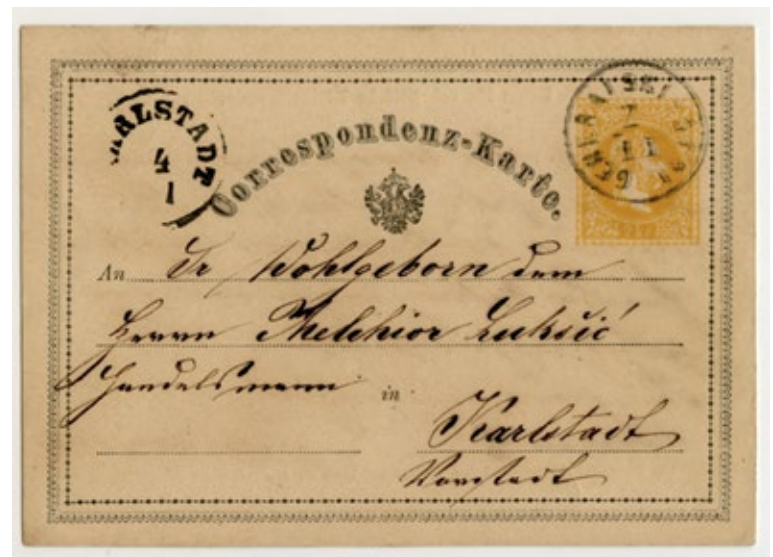 KARLSTADT
4
1
Correspondenz-Karte.
An Sr Wohlgeborn dem
Herrn Melchior Lukšić
Handelsmann in
Karlstadt
Vorstadt